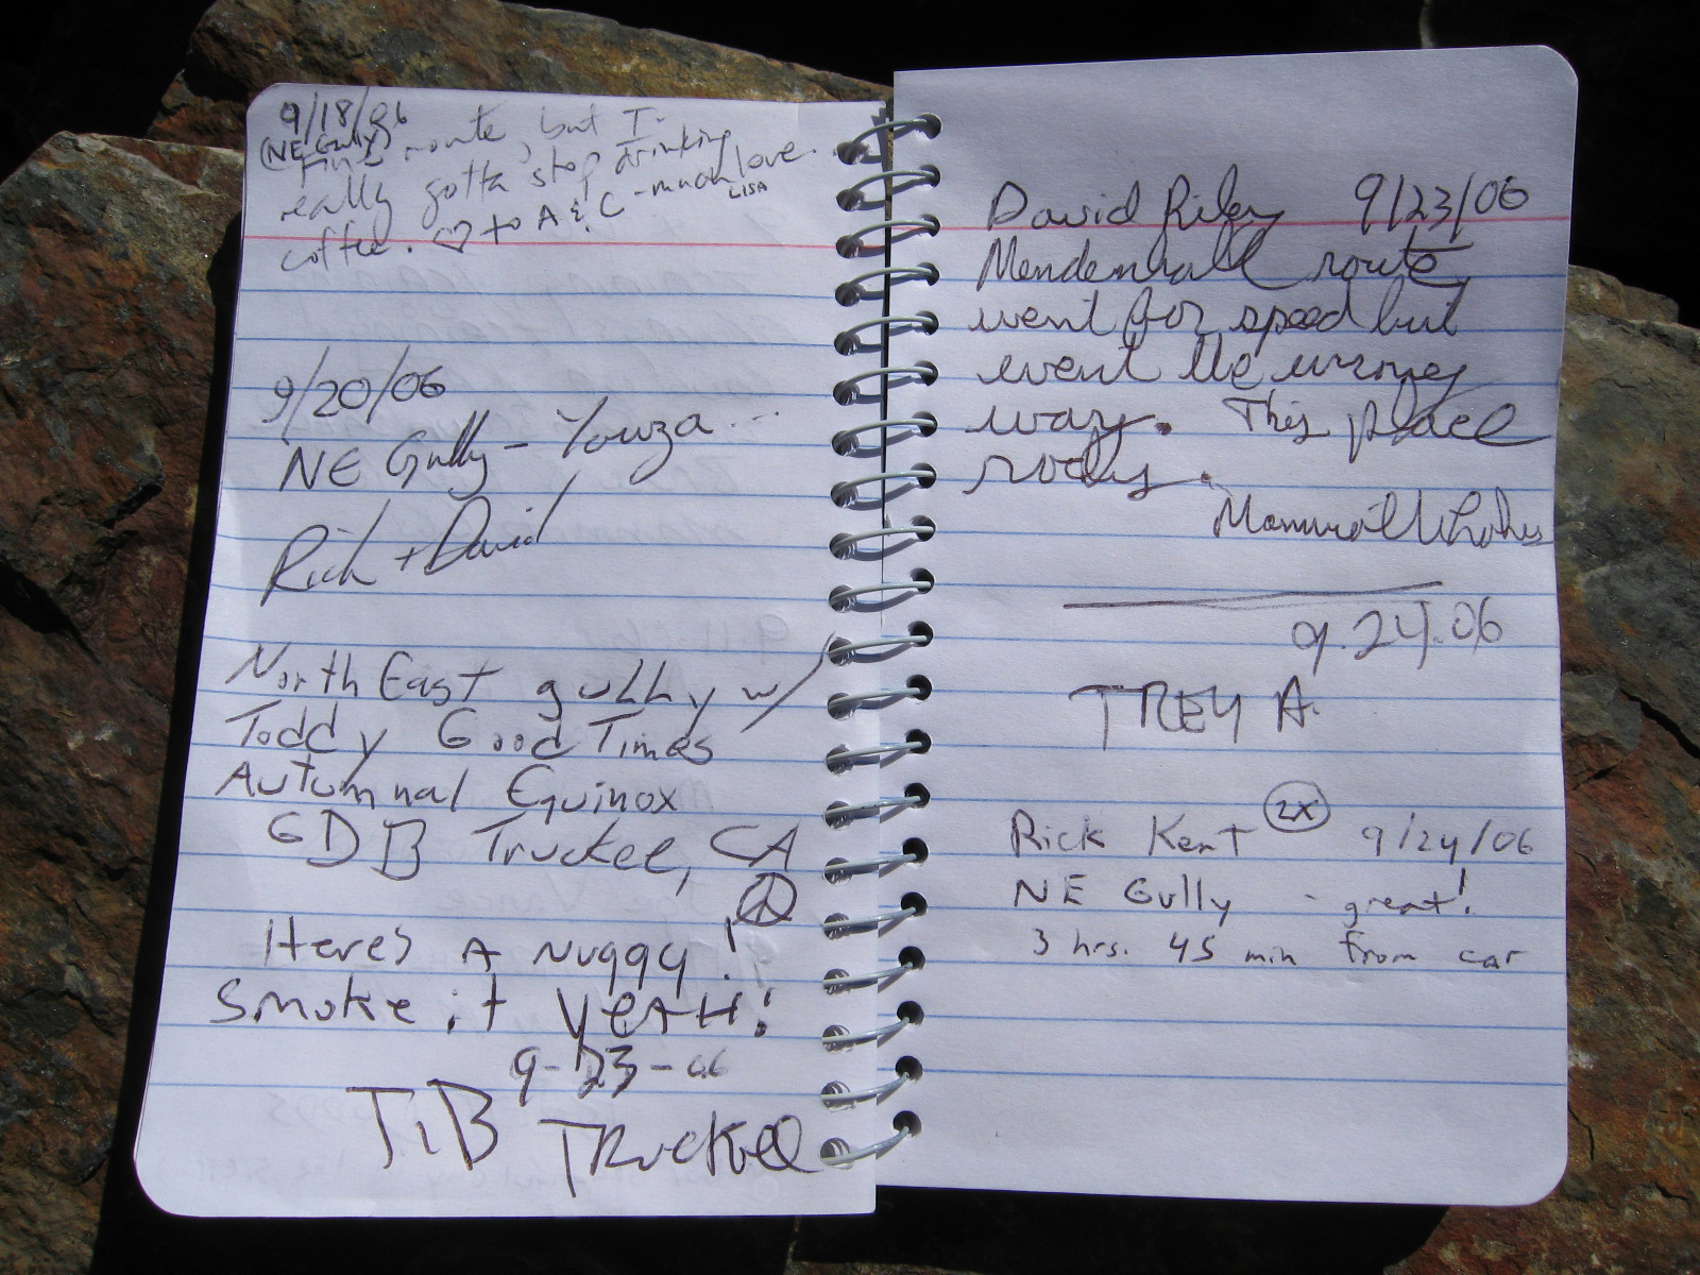 9/18/06
(NE Gully)
Fine route, but I
really gotta stop drinking
coffee. ♡ to A & C - much love.
LISA
9/20/06
NE Gully - Youza...
Rich + David
North East gullhy w/
Toddy Good Times
Autumnal Equinox
GDB Truckee, CA
Heres A Nuggy!
Smoke it YEAH!
9-23-06
TiB Truckee
David Riley 9/23/06
Mendenhall route,
went for speed but
went the wrong
way. This place
rocks.
Mammoth Lakes
9.24.06
TREY A.
Rick Kent 2x 9/24/06
NE Gully - great!
3 hrs. 45 min from car